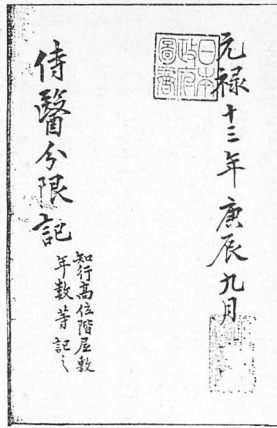 元禄十三年庚辰九月
日本
政府
圖書
侍醫分限記
知行高位階屋敷
年數等記之